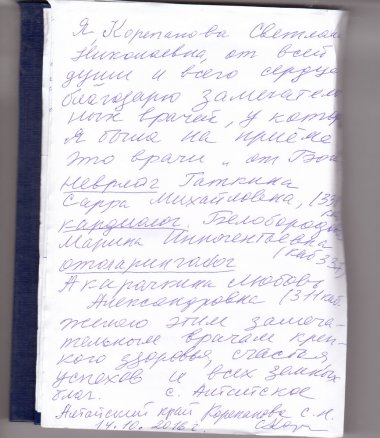 Я Корепанова Светлан
Николаевна, от всей
души и всего сердца
благодарю замечател
ных врачей, у котор
я была на приёме
это врачи „ от Бога
невролог Гаткина
Сарра Михайловна, (339
каб
кардиолог Белобородо
Марина Иннокентьевна
(каб 337)
отоларинголог
Акарачкина Любовь
Александровна (311 каб.
желаю этим замеча-
тельным врачам креп-
кого здоровья, счастья,
успехов и всех земных
благ. с. Алтайское
Алтайский край Корепанова С.Н.
14.10.2016 г.